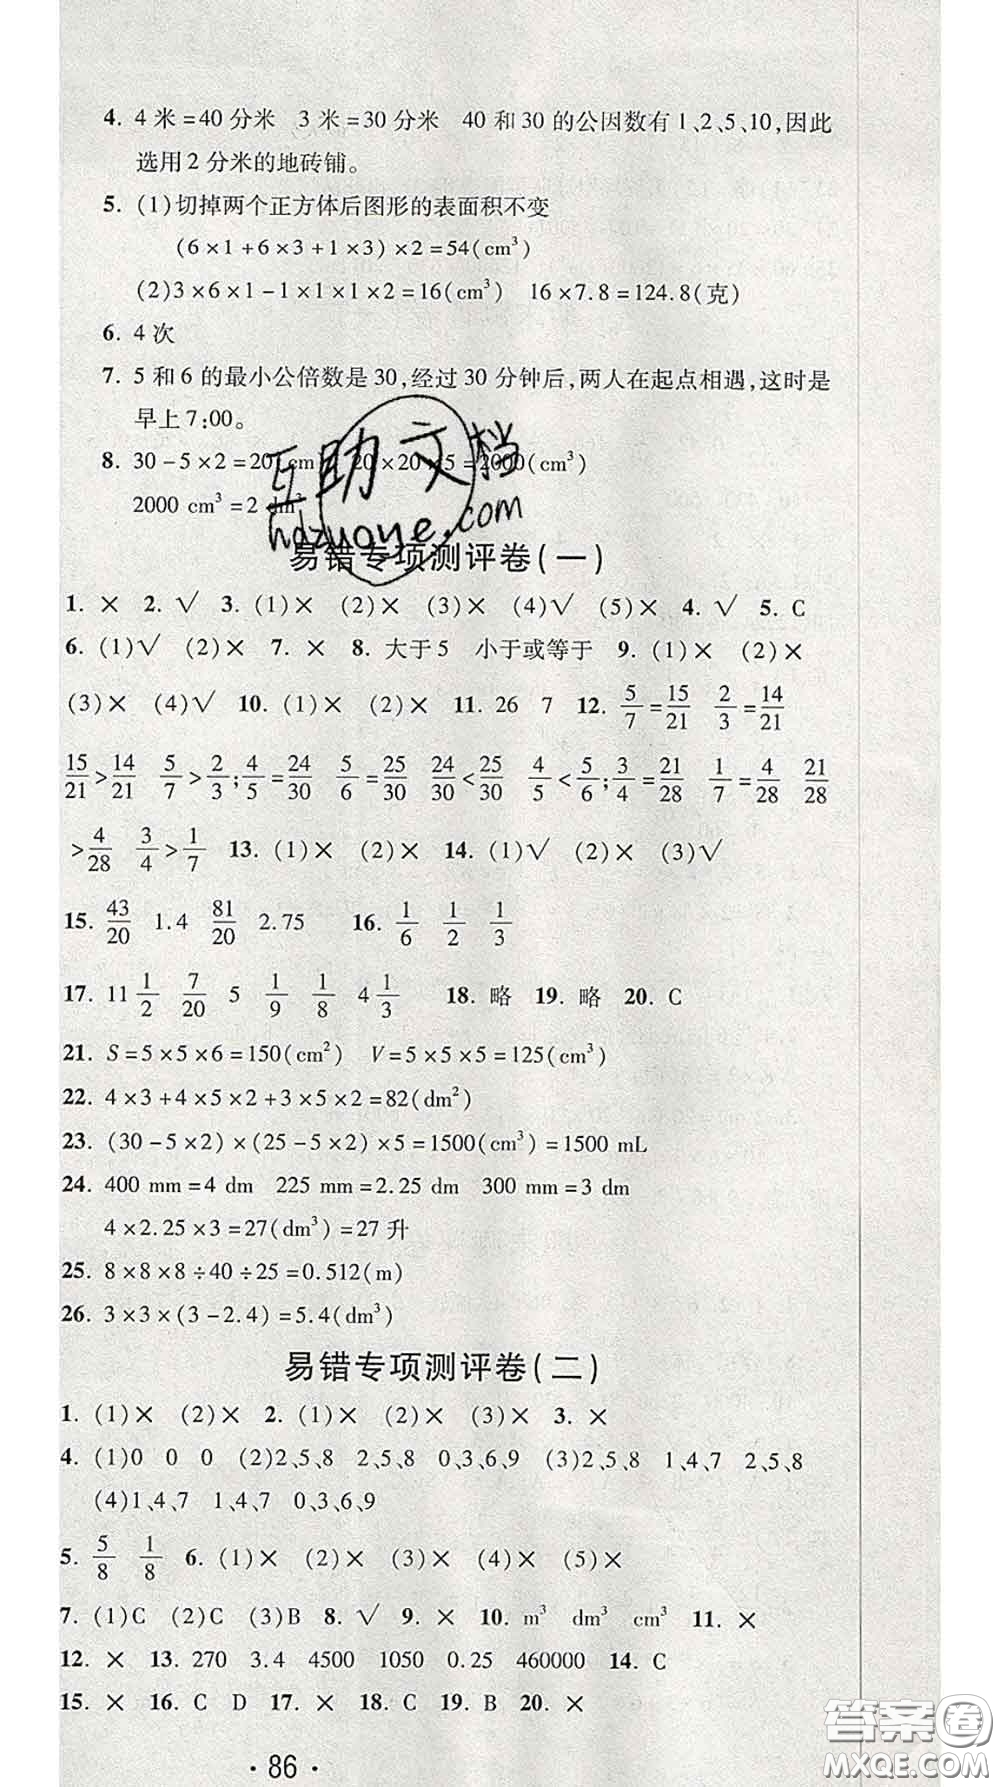 4. 4 米 =40 分米 3 米 =30 分米 40 和 30 的公因数有 1、2、5、10,因此
选用 2 分米的地砖铺。
5. (1)切掉两个正方体后图形的表面积不变
(6×1+6×3+1×3)×2=54(cm³)
(2)3×6×1-1×1×1×2=16(cm³) 16×7.8=124.8(克)
6. 4 次
7. 5 和 6 的最小公倍数是 30,经过 30 分钟后,两人在起点相遇,这时是
早上 7:00。
8. 30-5×2=20 cm 20×20×5=2000(cm³)
2000 cm³=2 dm³
互助文档
hdzuoye.com
易错专项测评卷(一)
1. × 2. √ 3. (1)× (2)× (3)× (4)√ (5)× 4. √ 5. C
6. (1)√ (2)× 7. × 8. 大于 5 小于或等于 9. (1)× (2)×
(3)× (4)√ 10. (1)× (2)× 11. 26 7 12. 5/7=15/21 2/3=14/21
15/21>14/21 5/7>2/3;4/5=24/30 5/6=25/30 24/30<25/30 4/5<5/6;3/4=21/28 1/7=4/28 21/28
>4/28 3/4>1/7 13. (1)× (2)× 14. (1)√ (2)× (3)√
15. 43/20 1.4 81/20 2.75 16. 1/6 1/2 1/3
17. 11 1/2 7/20 5 1/9 1/8 4 1/3 18. 略 19. 略 20. C
21. S=5×5×6=150(cm²) V=5×5×5=125(cm³)
22. 4×3+4×5×2+3×5×2=82(dm²)
23. (30-5×2)×(25-5×2)×5=1500(cm³)=1500 mL
24. 400 mm=4 dm 225 mm=2.25 dm 300 mm=3 dm
4×2.25×3=27(dm³)=27 升
25. 8×8×8÷40÷25=0.512(m)
26. 3×3×(3-2.4)=5.4(dm³)
易错专项测评卷(二)
1. (1)× (2)× 2. (1)× (2)× (3)× 3. ×
4. (1)0 0 0 (2)2、5、8 2、5、8 0、3、6、9 (3)2、5、8 1、4、7 2、5、8
(4)1、4、7 1、4、7 0、3、6、9
5. 5/8 1/8 6. (1)× (2)× (3)× (4)× (5)×
7. (1)C (2)C (3)B 8. √ 9. × 10. m³ dm³ cm³ 11. ×
12. × 13. 270 3.4 4500 1050 0.25 460000 14. C
15. × 16. C D 17. × 18. C 19. B 20. ×
· 86 ·
答案圈
MXQE.COM